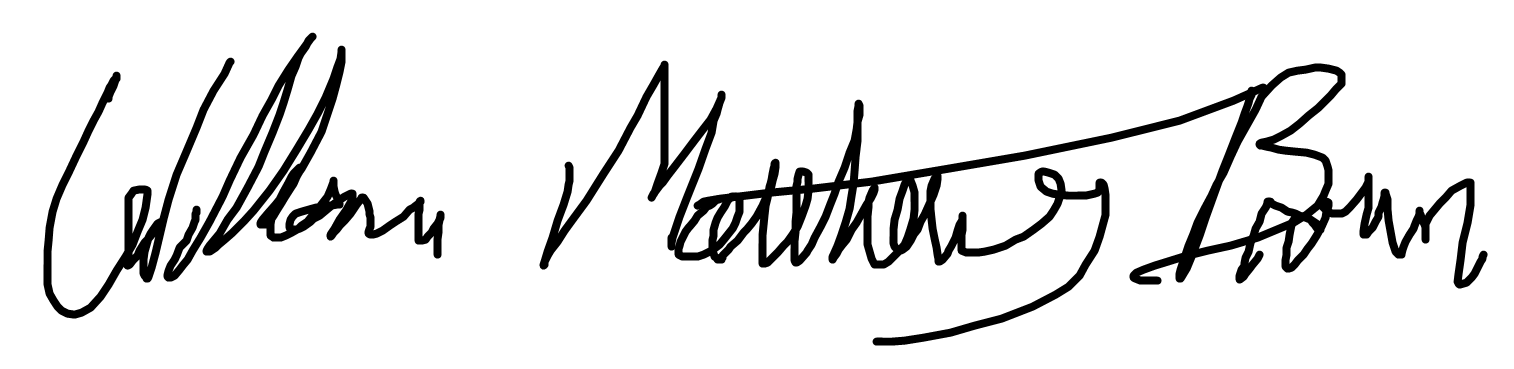 William Matthews Brown